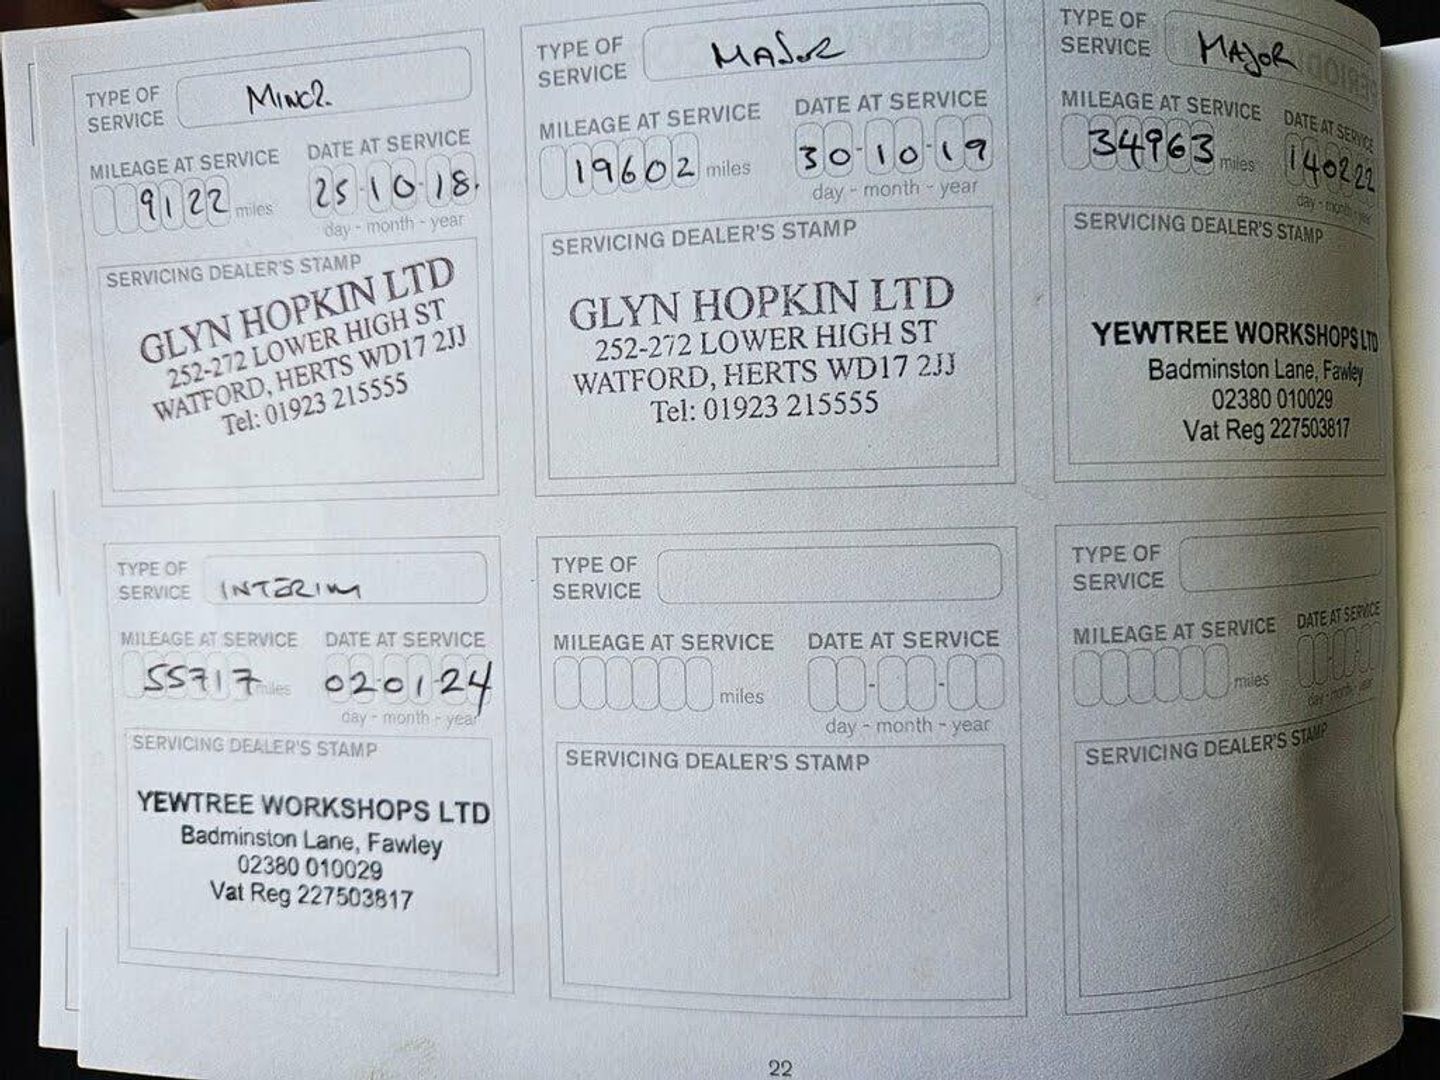 TYPE OF
SERVICE
MINOR
MILEAGE AT SERVICE
DATE AT SERVICE
9122 miles
25-10-18.
day - month - year
SERVICING DEALER'S STAMP
GLYN HOPKIN LTD
252-272 LOWER HIGH ST
WATFORD, HERTS WD17 2JJ
Tel: 01923 215555
TYPE OF
SERVICE
MAJOR
MILEAGE AT SERVICE
DATE AT SERVICE
19602 miles
30-10-19
day - month - year
SERVICING DEALER'S STAMP
GLYN HOPKIN LTD
252-272 LOWER HIGH ST
WATFORD, HERTS WD17 2JJ
Tel: 01923 215555
TYPE OF
SERVICE
MAJOR
MILEAGE AT SERVICE
DATE AT SERVICE
34963 miles
140222
day - month - year
SERVICING DEALER'S STAMP
YEWTREE WORKSHOPS LTD
Badminston Lane, Fawley
02380 010029
Vat Reg 227503817
TYPE OF
SERVICE
INTERIM
MILEAGE AT SERVICE
DATE AT SERVICE
55717 miles
02-01-24
day - month - year
SERVICING DEALER'S STAMP
YEWTREE WORKSHOPS LTD
Badminston Lane, Fawley
02380 010029
Vat Reg 227503817
TYPE OF
SERVICE
MILEAGE AT SERVICE
DATE AT SERVICE
miles
day - month - year
SERVICING DEALER'S STAMP
TYPE OF
SERVICE
MILEAGE AT SERVICE
DATE AT SERVICE
miles
day - month - year
SERVICING DEALER'S STAMP
22